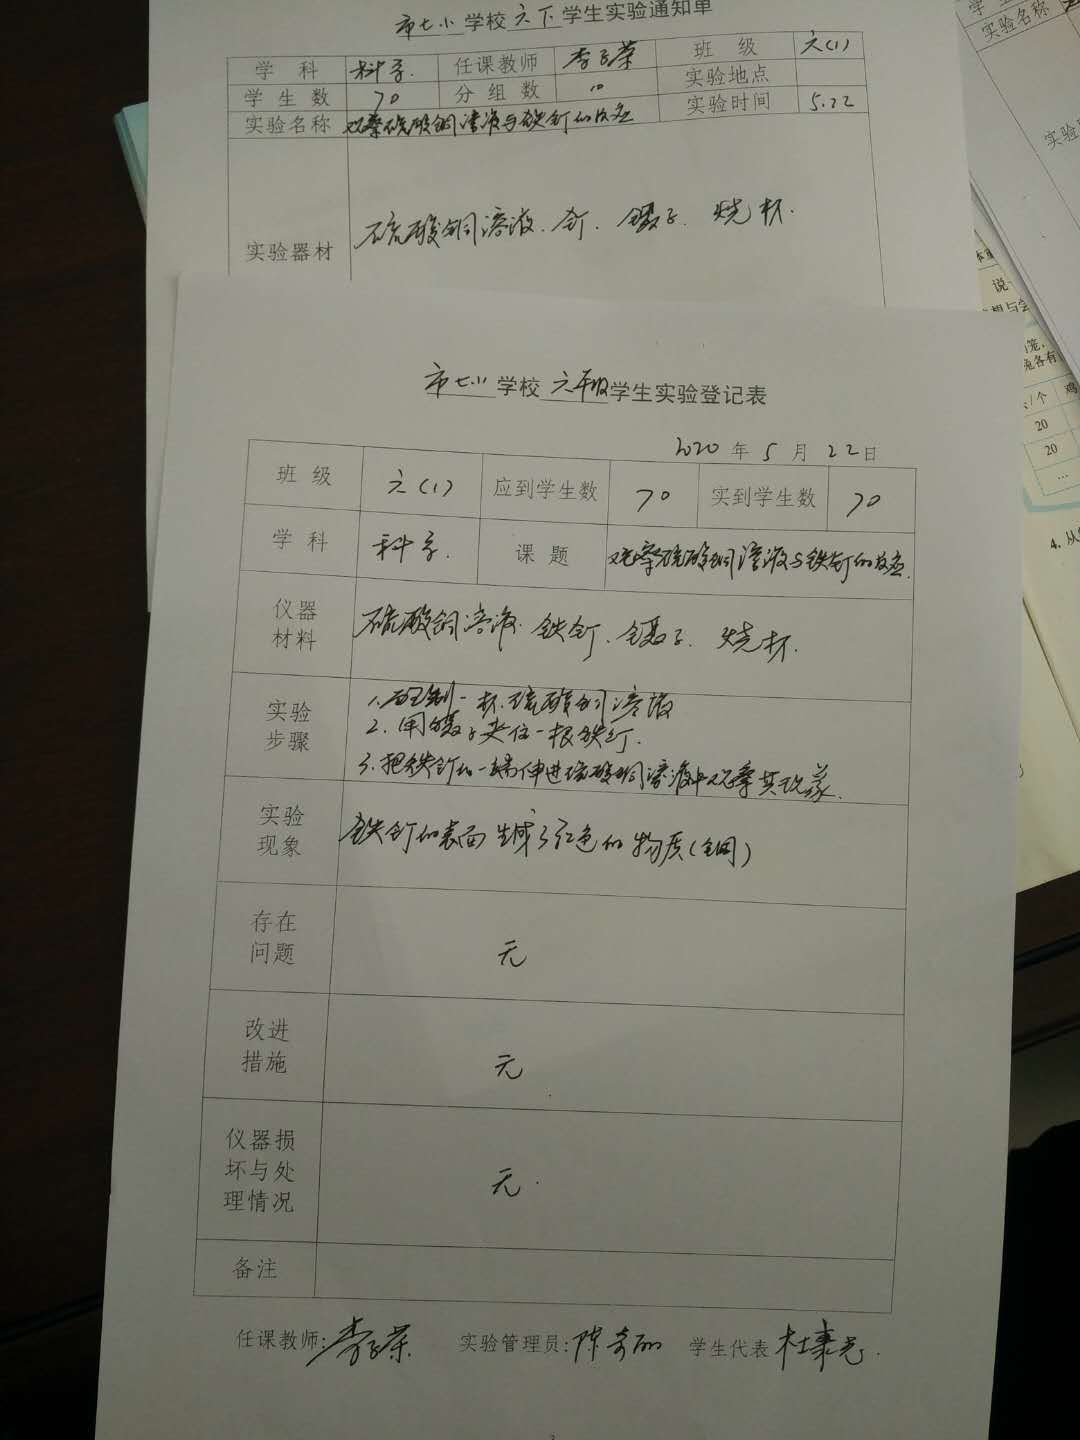 市七小学校六下学生实验通知单
学科 科学. 任课教师 李子荣 班级 六(1)
学生数 70 分组数 10 实验地点
实验名称 观察硫酸铜溶液与铁钉的反应 实验时间 5.22
实验器材 硫酸铜溶液、钉、镊子、烧杯.
市七小学校六年级学生实验登记表
2020年5月22日
班级 六(1) 应到学生数 70 实到学生数 70
学科 科学. 课题 观察硫酸铜溶液与铁钉的反应.
仪器
材料
硫酸铜溶液、铁钉、镊子、烧杯.
实验
步骤
1.配制一杯硫酸铜溶液
2.用镊子夹住一根铁钉.
3.把铁钉的一端伸进硫酸铜溶液中观察其现象.
实验
现象
铁钉的表面生成了红色的物质(铜)
存在
问题
无
改进
措施
无
仪器损
坏与处
理情况
无.
备注
任课教师:李子荣 实验管理员:陈 学生代表 杜
学
实验名称
实验
说
笼,
兔各有
/个 鸡
20
20
...
4.从